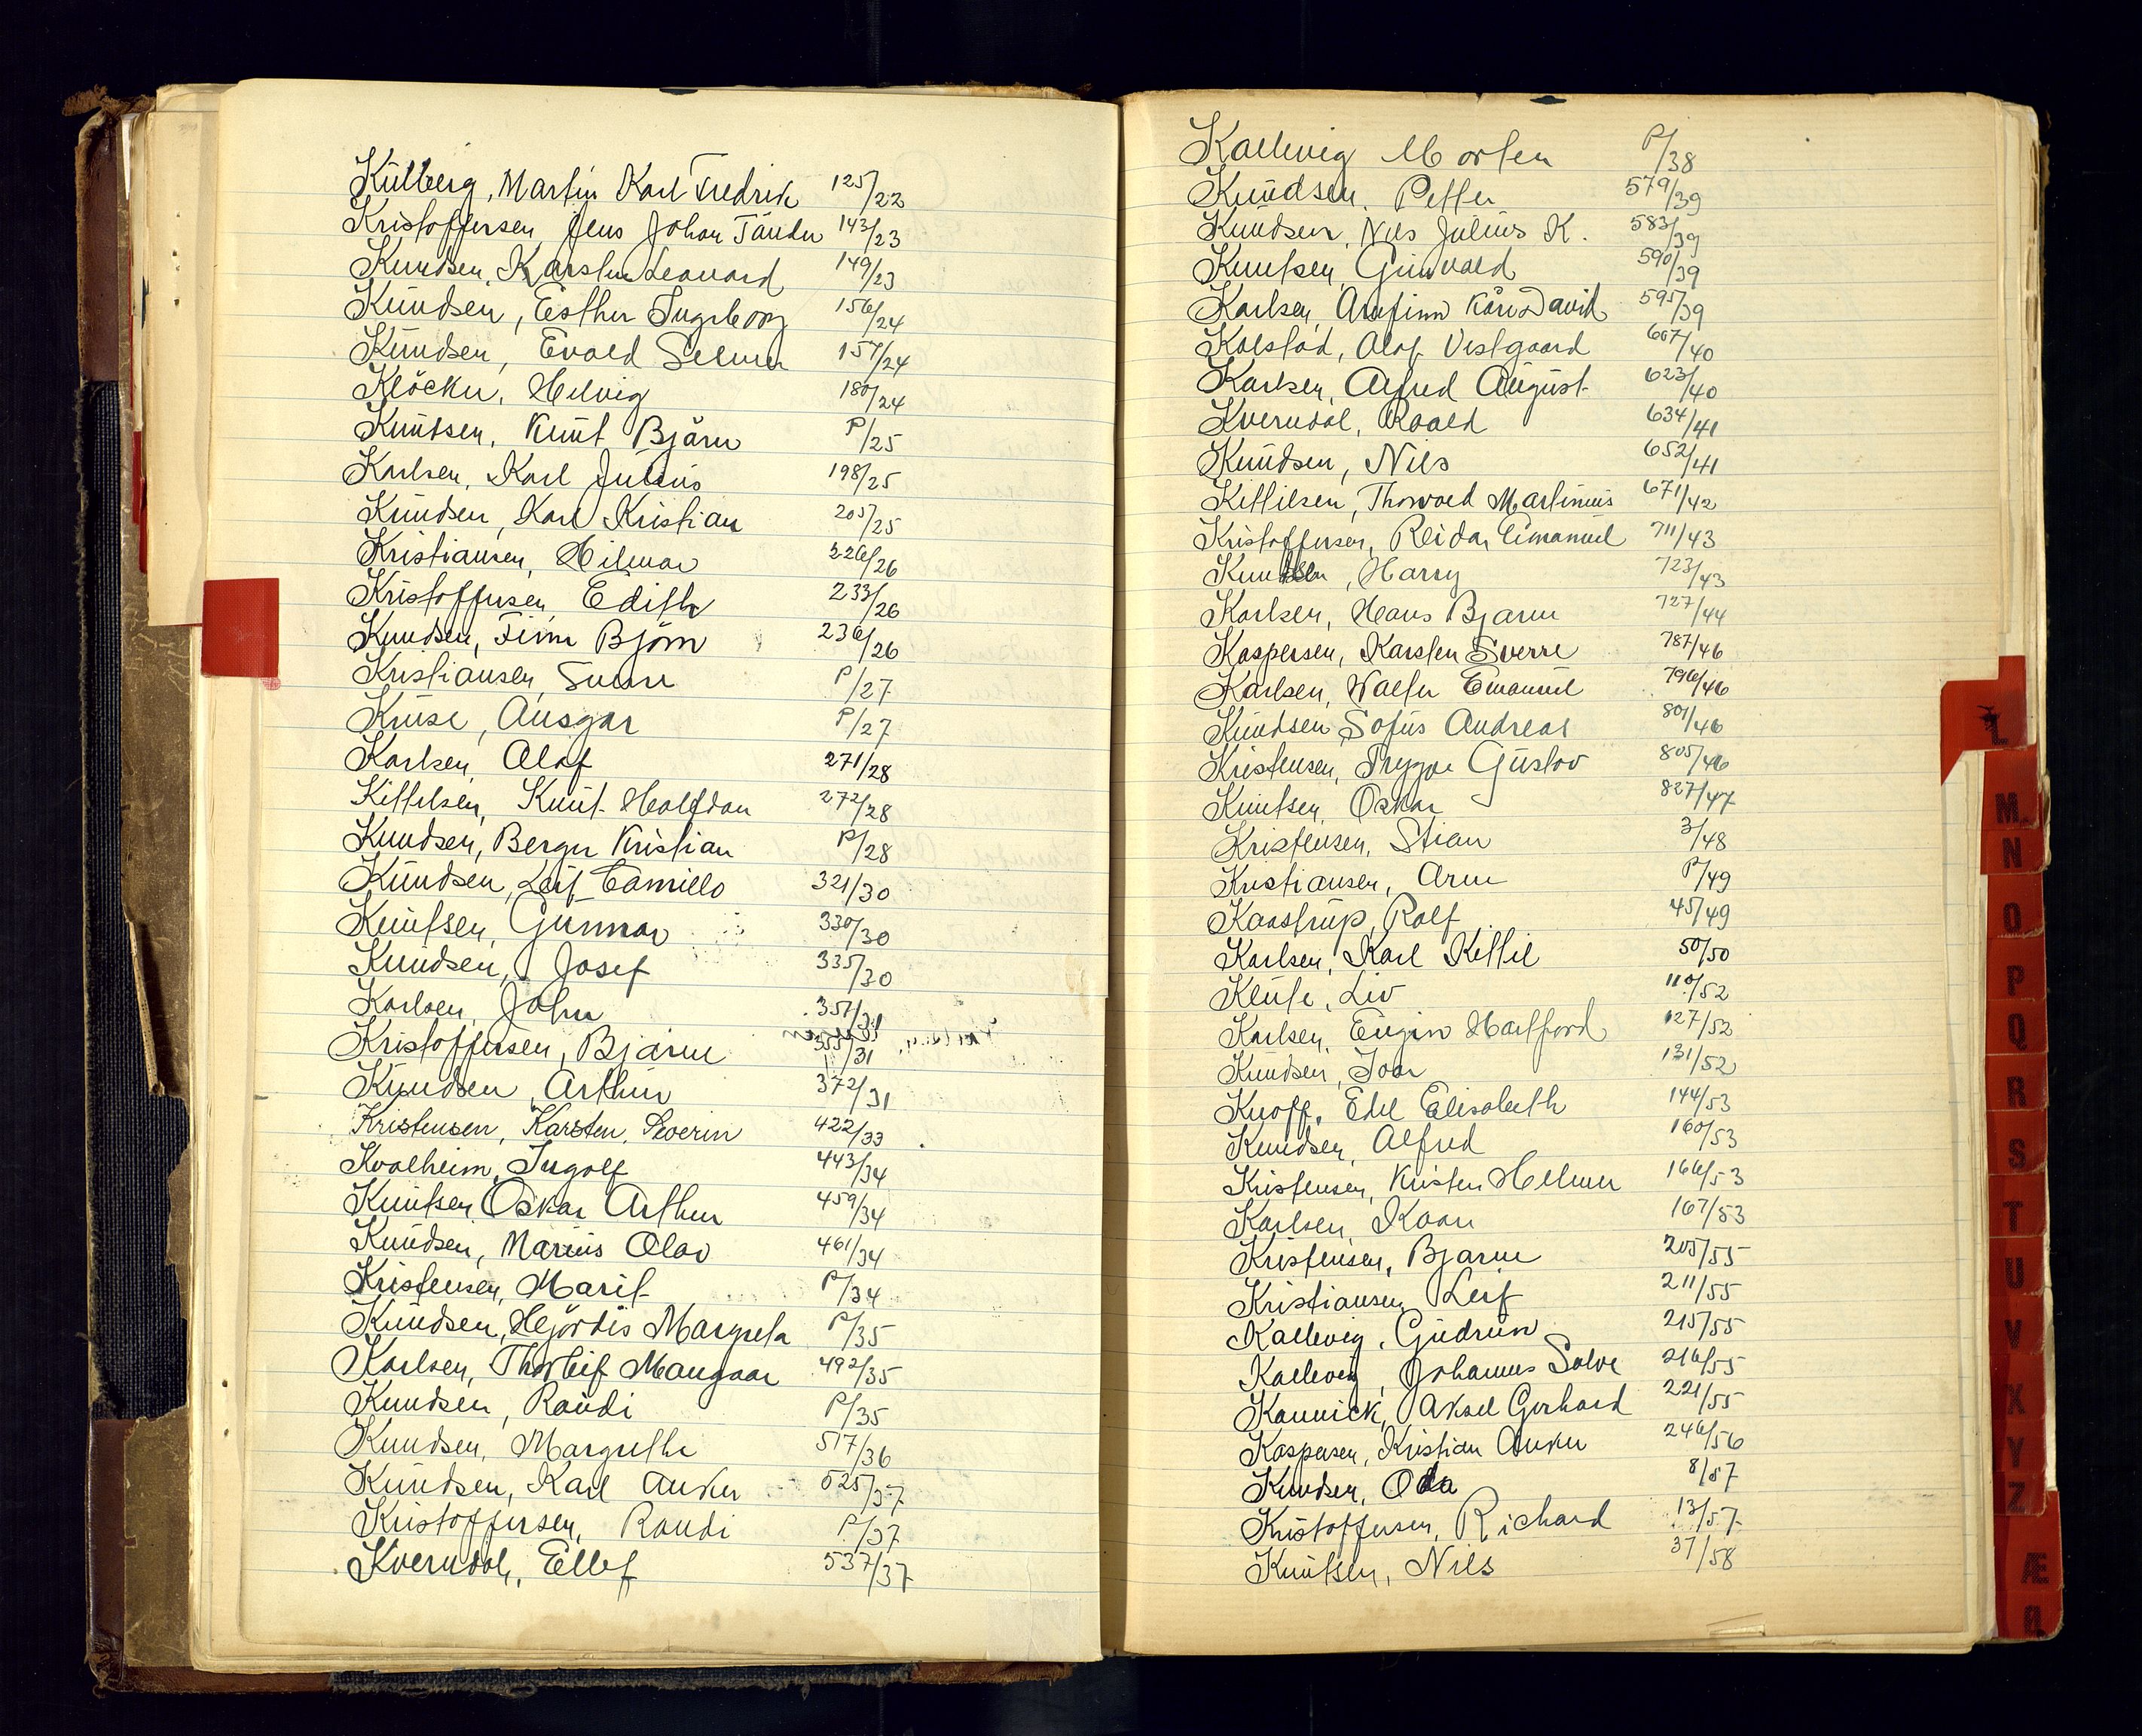 Külberg, Martin Karl Fredrik 125/22
Kristoffersen Jens Johan Tänder 143/23
Knudsen, Karsten Leonard 149/23
Knudsen, Esther Ingeborg 156/24
Knudsen, Evald Selmer 157/24
Klöcker, Helvig 180/24
Knutsen, Knut Bjarne P/25
Karlsen, Karl Julius 198/25
Knudsen, Karl Kristian 205/25
Kristiansen, Hilmar 226/26
Kristoffersen, Edith 233/26
Knudsen, Finn Björn 236/26
Kristiansen, Sverre P/27
Kruse, Ansgar P/27
Karlsen, Olaf 271/28
Kittelsen, Knut Halfdan 272/28
Knudsen, Berger Kristian P/28
Knudsen, Leif Camillo 321/30
Knutsen, Gunnar 330/30
Knudsen, Josef 335/30
Karlsen, John 357/31
Kristoffersen, Bjarne 355/31
Knudsen, Arthur 372/31
Kristensen, Karsten, Severin 422/33
Kvalheim, Ingolf 443/34
Knutsen Oskar Arthur 459/34
Knudsen, Marius Olav 461/34
Kristensen, Marit P/34
Knudsen, Hjördis Margreta P/35
Karlsen, Thorleif Mangaar 492/35
Knudsen, Randi P/35
Knudsen, Margrethe 517/36
Knudsen, Karl Anker 525/37
Kristoffersen, Randi P/37
Kverndal, Ellef 537/37
Kallevig Morten P/38
Knudsen, Petter 579/39
Knudsen, Nils Julius K. 583/39
Knutsen, Gunvald 590/39
Karlsen, Arnfinn Kåre David 595/39
Kolstad, Olaf Vestgaard 607/40
Karlsen, Alfred August 623/40
Kverndal, Roald 634/41
Knudsen, Nils 652/41
Kittilsen, Thorvald Martinius 671/42
Kristoffersen, Reidar Emanuel 711/43
Knudsen, Harry 723/43
Karlsen, Hans Bjarne 727/44
Kaspersen, Karsten Sverre 787/46
Karlsen, Walter Emanuel 796/46
Knudsen Sofus Andreas 801/46
Kristensen, Trygve Gustav 805/46
Knutsen, Oskar 827/47
Kristensen, Stian 3/48
Kristiansen, Arne P/49
Kaastrup, Rolf 45/49
Karlsen, Karl Kittil 50/50
Klute, Liv 110/52
Karlsen, Eugin Hartford 127/52
Knudsen, Ioar 131/52
Knoff, Edel Elisabeth 144/53
Knudsen, Alfred 160/53
Kristensen, Kristen Helmer 166/53
Karlsen, Kaare 167/53
Kristensen, Bjarne 205/55
Kristiansen, Leif 211/55
Kallevig, Gudrun 215/55
Kallevig, Johannes Salve 216/55
Kannick, Aksel Gerhard 221/55
Kaspersen, Kristian Anker 246/56
Knudsen, Oda 8/57
Kristoffersen, Richard 13/57
Knutsen, Nils 37/58
L
M
N
O
P
Q
R
S
T
U
V
X
Y
Z
Æ
Ø